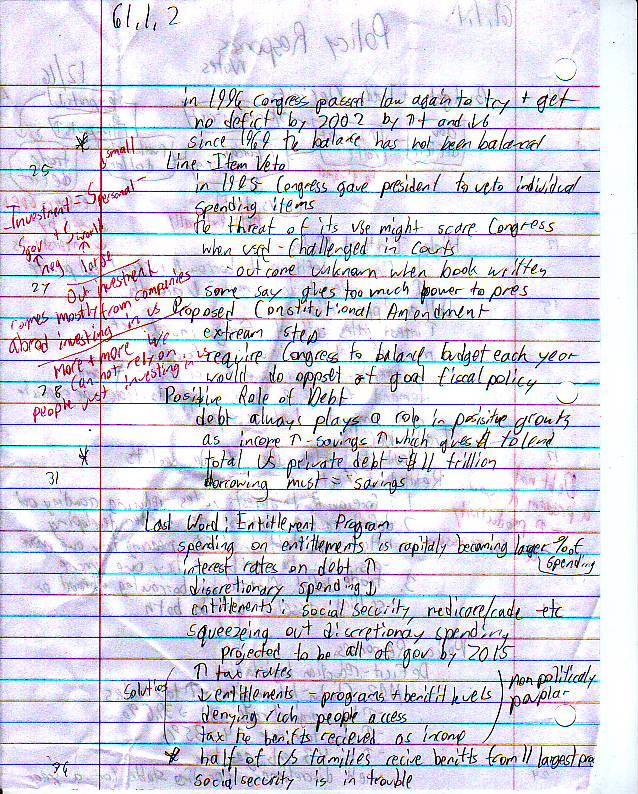 61,1,2
in 1996 Congress passed law again to try + get
no deficit by 2002 by ↑t and ↓G
* since 1969 the balance has not been balanced
25 Line-Item Veto
in 1995 Congress gave president to veto individual
spending items
the threat of its use might scare Congress
when used - Challenged in courts
- outcome unknown when book written
27 some say gives too much power to pres
Proposed Constitutional Amendment
extream step
require Congress to balance budget each year
would do oppset of goal fiscal policy
28 Positive Role of Debt
debt always plays a role in posisitive growth
as income ↑ - savings ↑ which gives $ to lend
* total US private debt = $11 trillion
31 borrowing must = savings
small
Investment = Spersonal -
Sgov + Sworld
↑neg ↑large
Our investment
comes mostly from companies
abroad investing in us
more + more we
can not rely on
people just investing in us
Last Word: Entitlement Program
spending on entitlements is rapitaly becoming larger % of spending
interest rates on debt ↑
discretionary spending ↓
entitlements: social security, medicare/cade etc
squeezing out discretionay spending
projected to be all of gov by 2015
↑ tax rates
solutios ↓ entitlements = programs + benifit levels non politicaly paplar
denying rich people access
tax the benifts recieved as income
* half of US families recive benifts from 11 largest
social security is in trouble